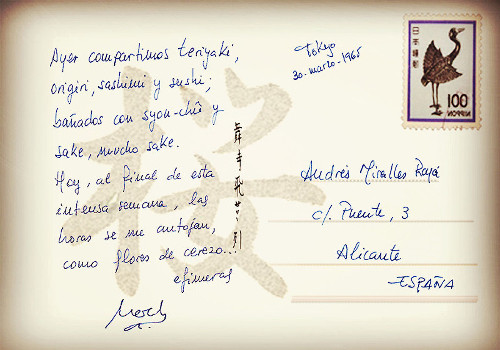 Ayer compartimos teriyaki,
origiri, sashimi y sushi;
bañados con syon-chû y
sake, mucho sake.
Hoy, al final de esta
intensa semana, las
horas se me antojan,
como flores de cerezo...
efímeras
Tokyo
30-marzo-1965
日本郵便
100
NIPPON
Andrés Miralles
c/. Puente, 3
Alicante
ESPAÑA